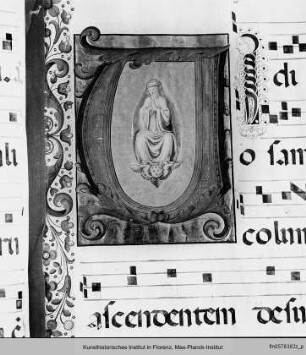 V I di
o sam
colum
ascendentem desu
Kunsthistorisches Institut in Florenz, Max-Planck-Institut
fln0576162z_p